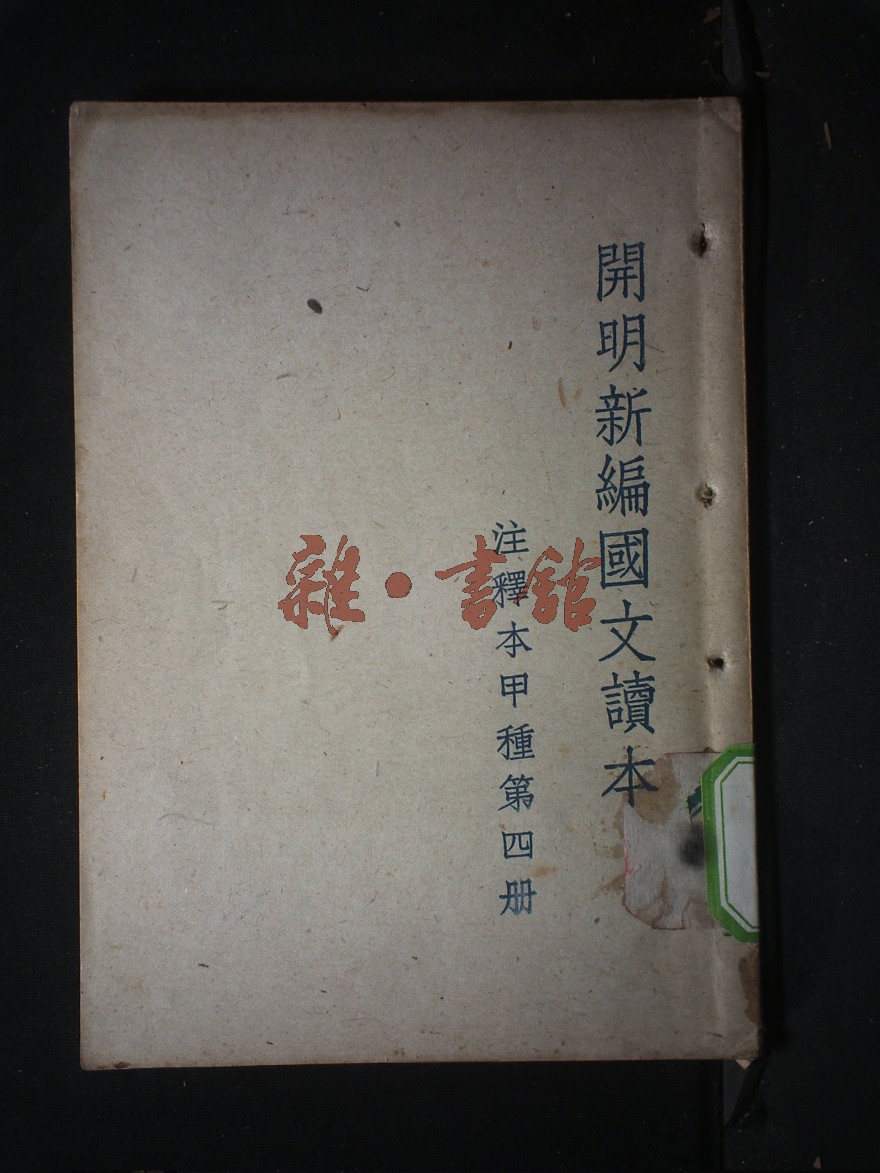 開明新編國文讀本
注釋本甲種第四册
雜·書館